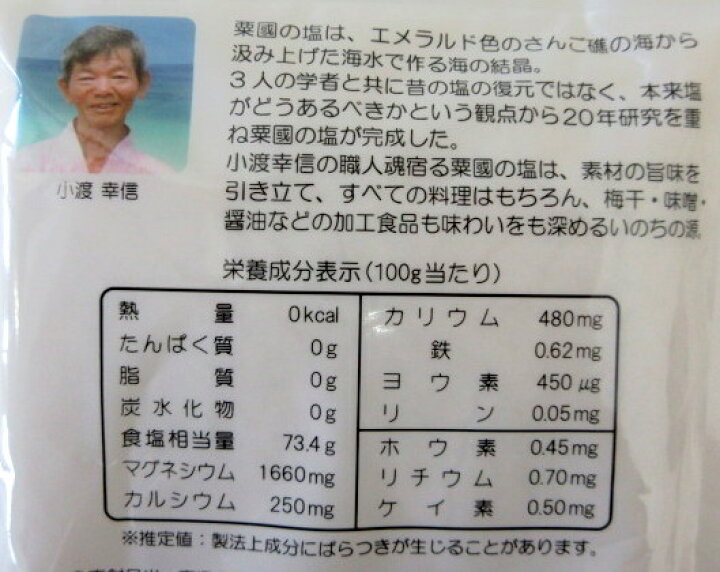 粟國の塩は、エメラルド色のさんご礁の海から
汲み上げた海水で作る海の結晶。
3人の学者と共に昔の塩の復元ではなく、本来塩
がどうあるべきかという観点から20年研究を重
ね粟國の塩が完成した。
小渡幸信の職人魂宿る粟國の塩は、素材の旨味を
引き立て、すべての料理はもちろん、梅干・味噌・
醤油などの加工食品も味わいをも深めるいのちの源
小渡 幸信
栄養成分表示(100g当たり)
熱量 0kcal
たんぱく質 0g
脂質 0g
炭水化物 0g
食塩相当量 73.4g
マグネシウム 1660mg
カルシウム 250mg
カリウム 480mg
鉄 0.62mg
ヨウ素 450μg
リン 0.05mg
ホウ素 0.45mg
リチウム 0.70mg
ケイ素 0.50mg
※推定値：製法上成分にばらつきが生じることがあります。